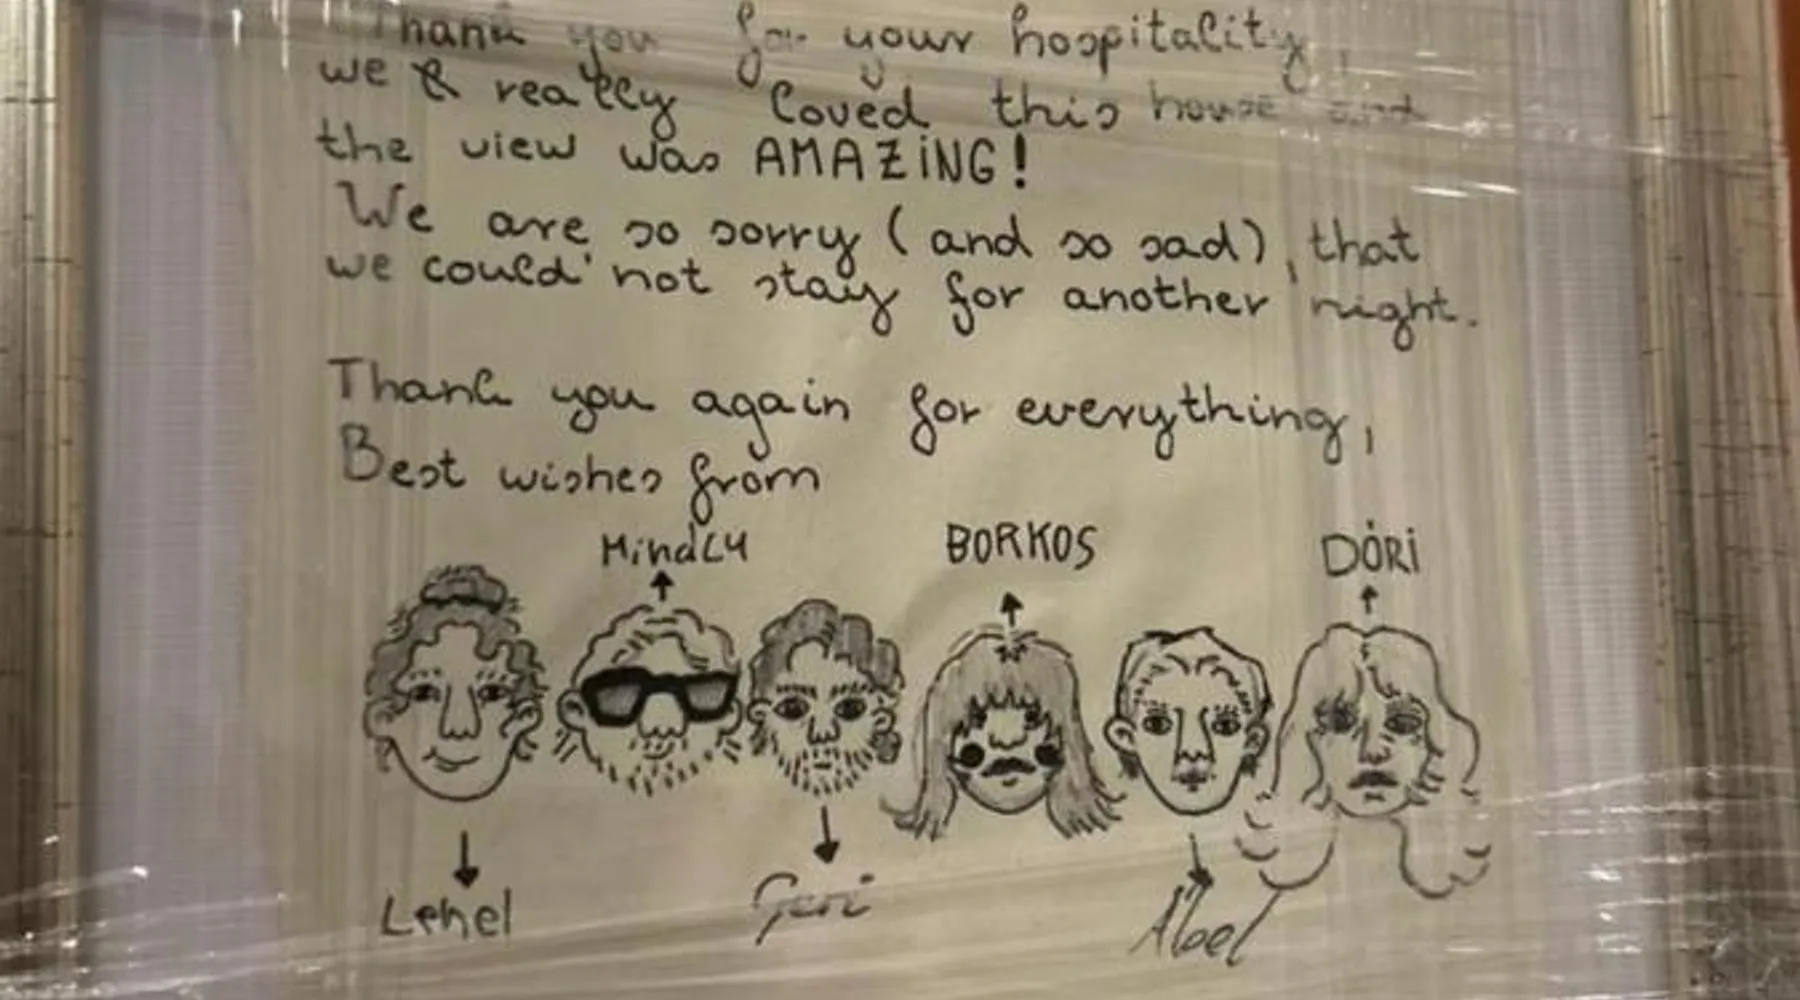 Thank you for your hospitality,
we & really loved this house and
the view was AMAZiNG!
We are so sorry (and so sad), that
we could not stay for another night.
Thank you again for everything,
Best wishes from
MindLY BORKOS DÓRi
Lehel Geri Ábel